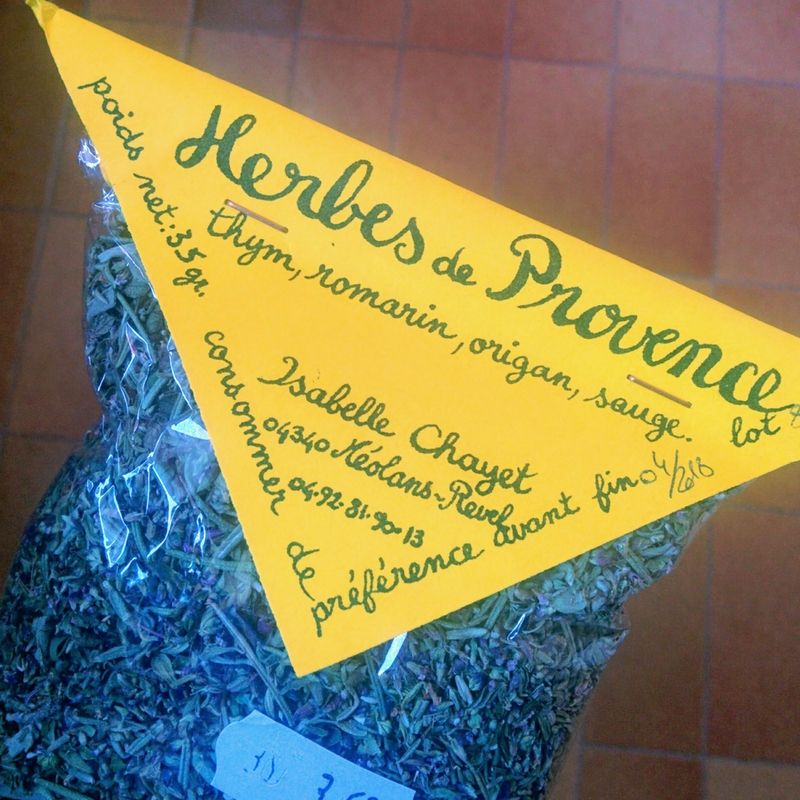 Herbes de Provence
thym, romarin, origan, sauge.
poids net: 35 gr.
Isabelle Chayet
04340 Méolans-Revel
04.92.81.90.13
consommer de préférence avant fin 04/2018
lot